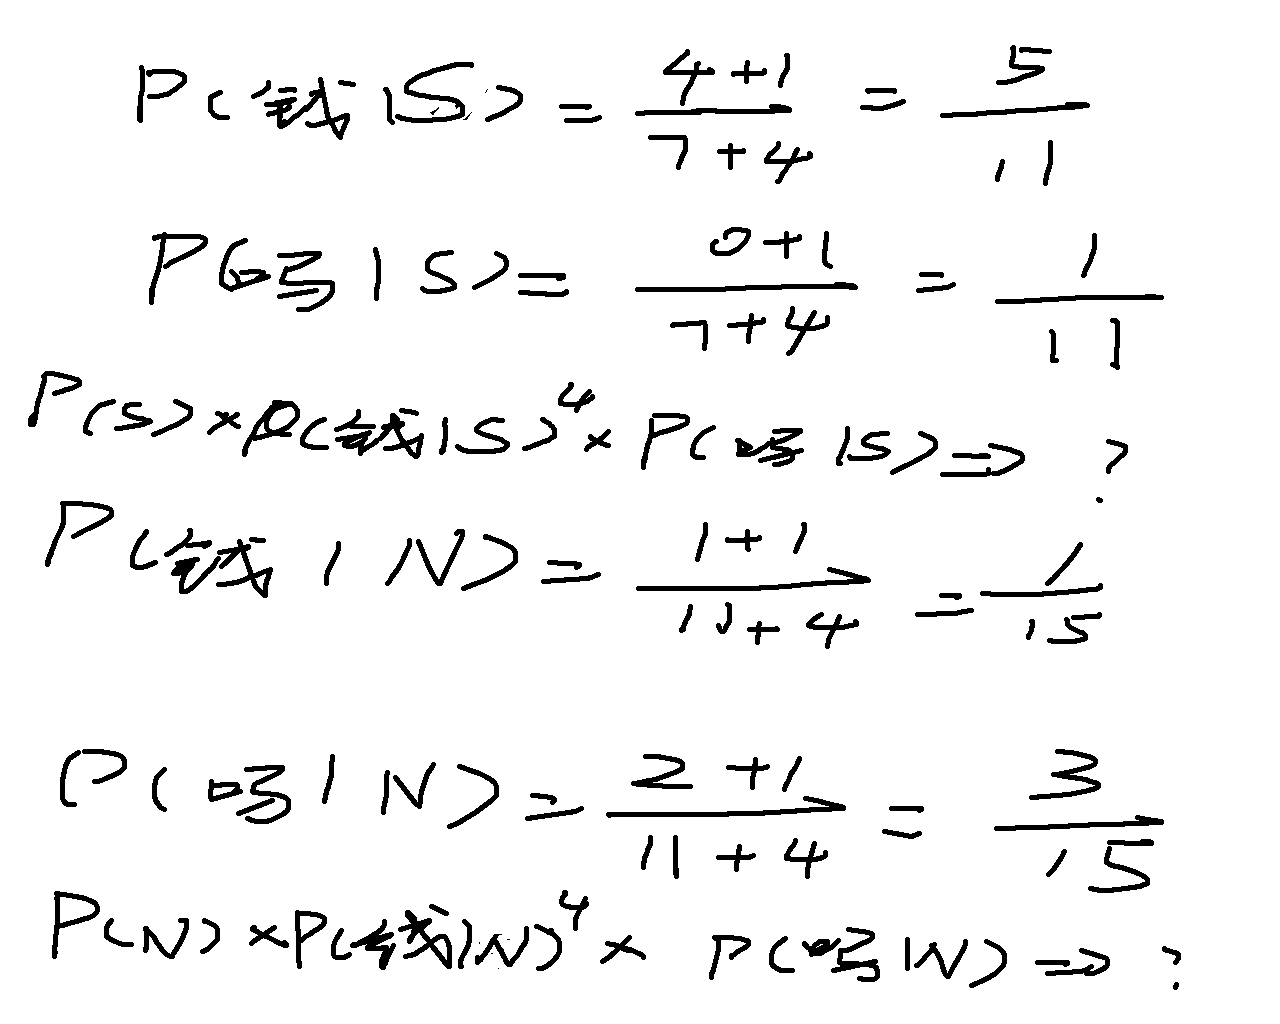 P(钱|S) = (4+1)/(7+4) = 5/11
P(吗|S) = (0+1)/(7+4) = 1/11
P(S)×P(钱|S)^4×P(吗|S) => ?
P(钱|N) = (1+1)/(11+4) = 1/15
P(吗|N) = (2+1)/(11+4) = 3/15
P(N)×P(钱|N)^4×P(吗|N) => ?